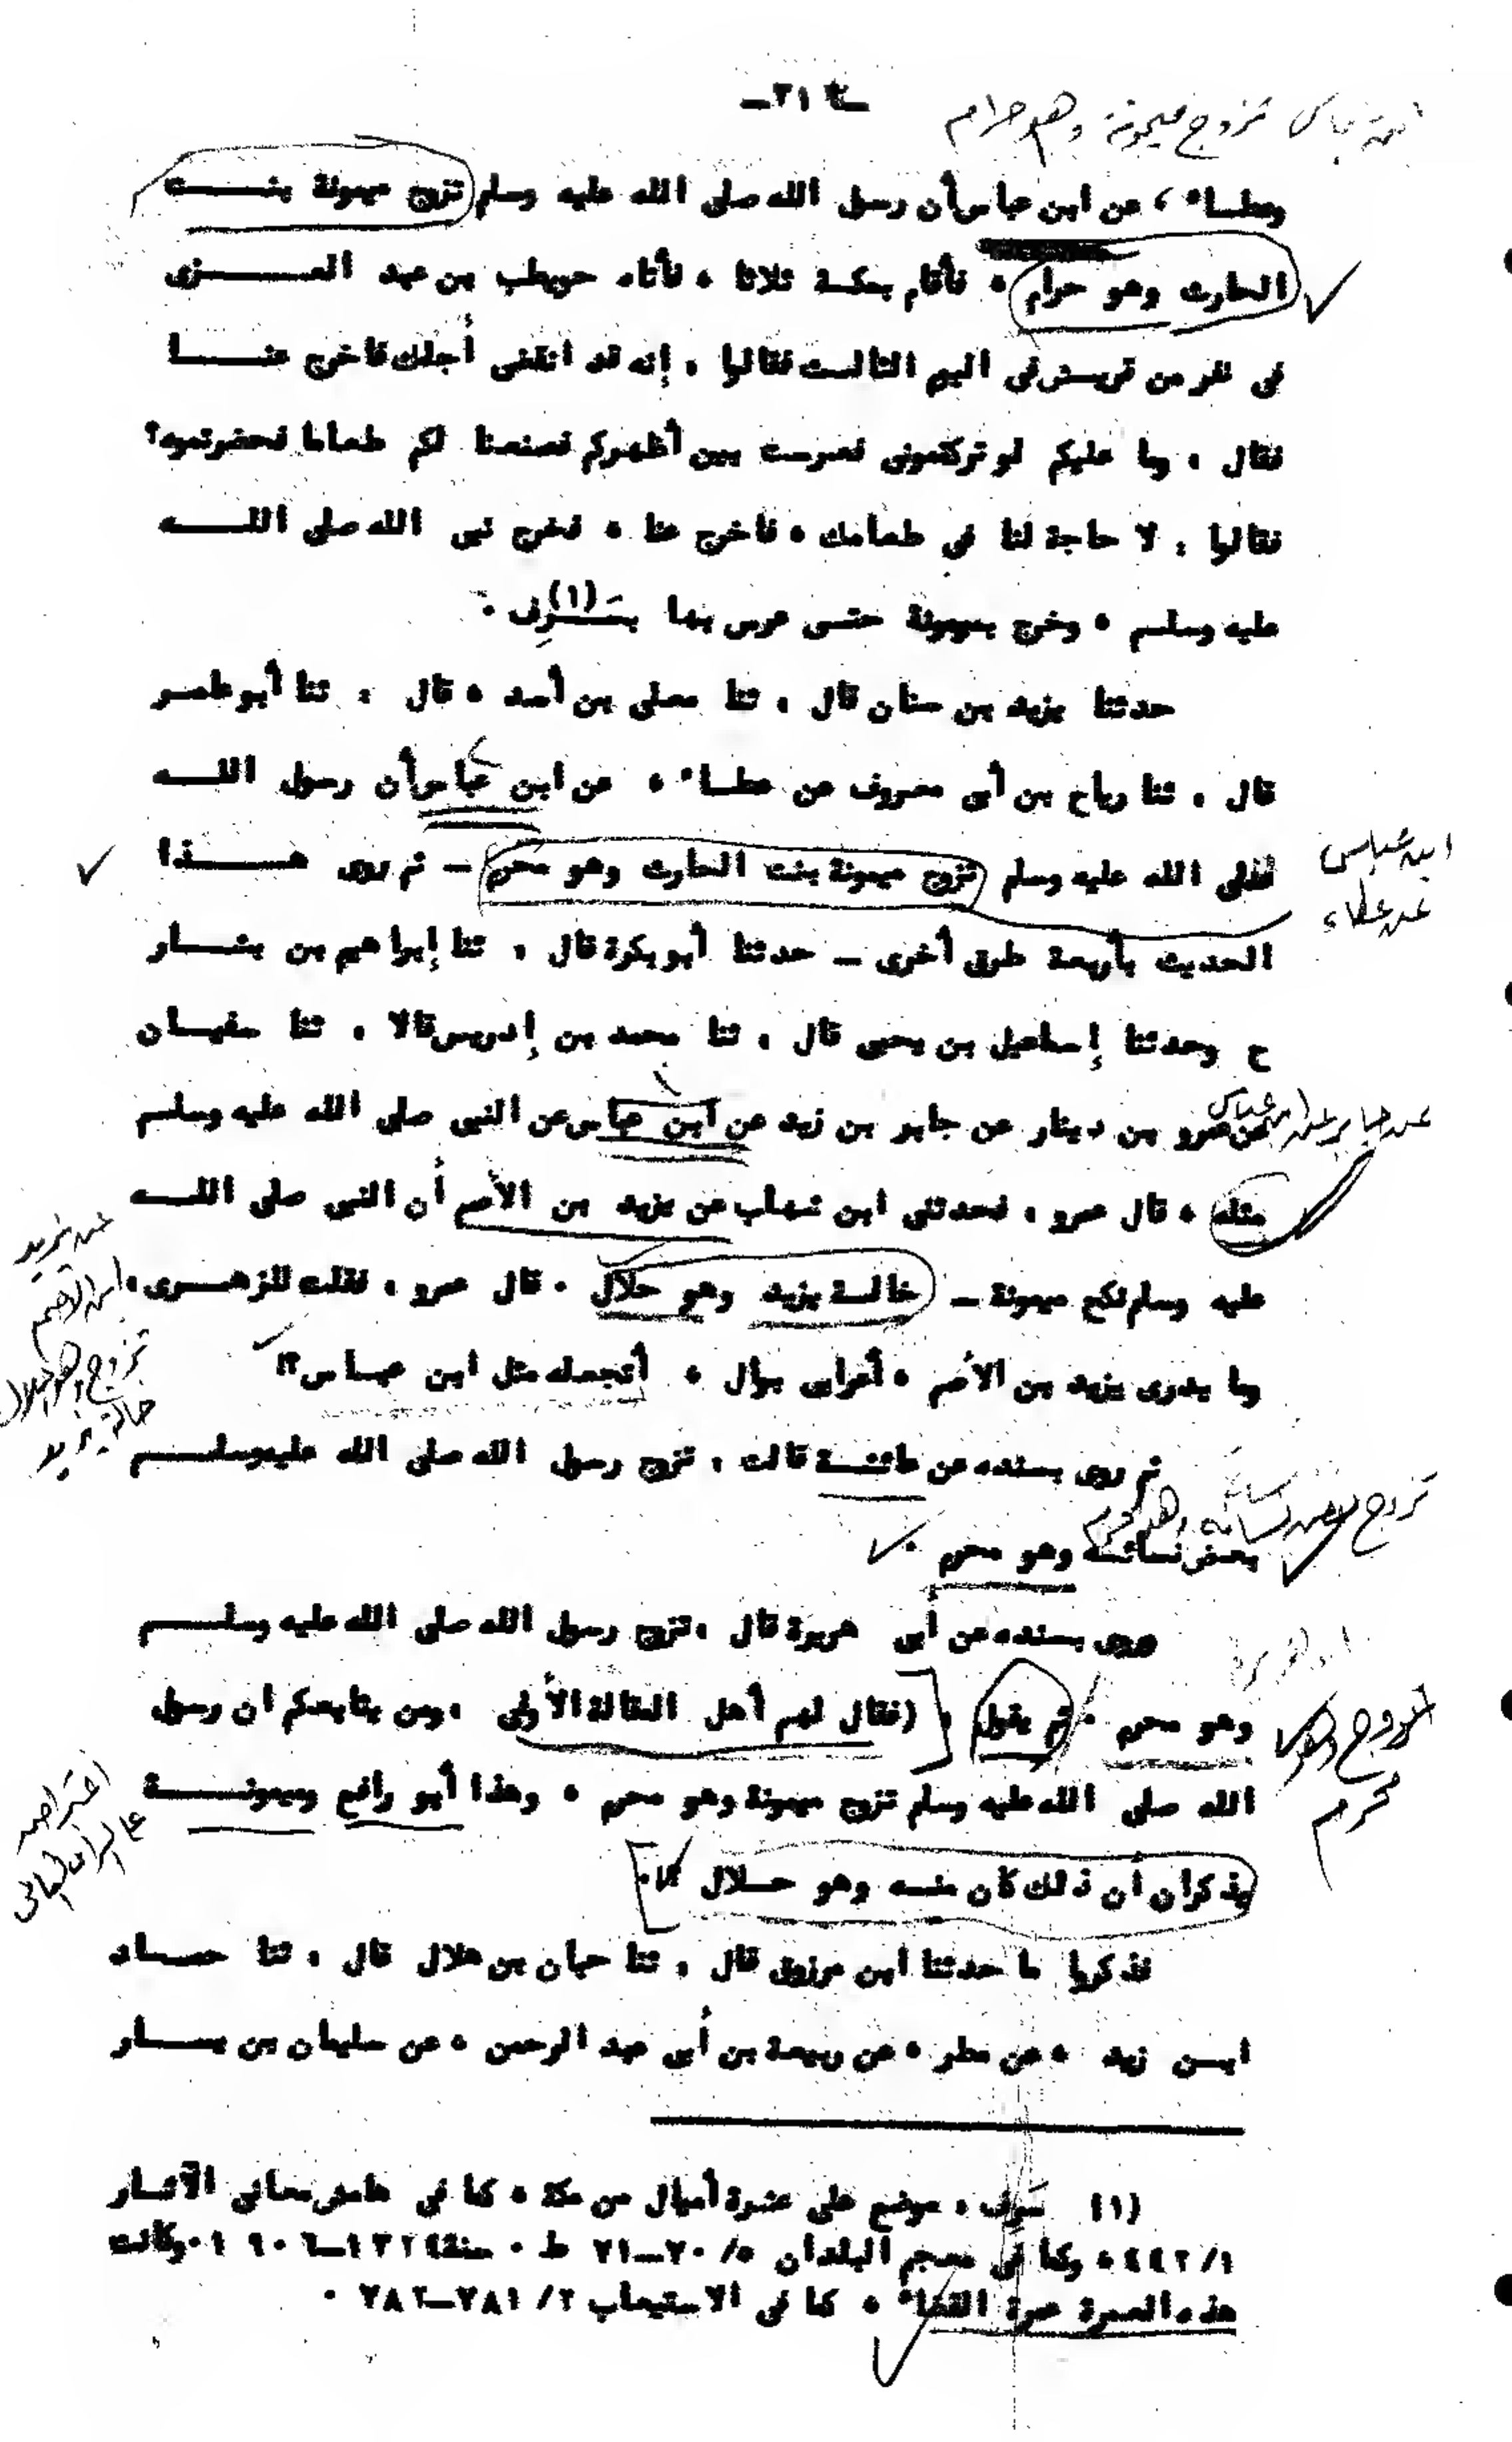 ـ ٢١ ـ
تزوج ميمونة وهو حرام
وعطاء ، عن ابن عباس أن رسول الله صلى الله عليه وسلم تزوج ميمونة بنت
الحارث وهو حرام ، فأقام بمكة ثلاثا ، فأتاه حويطب بن عبد العزى
فى نفر من قريش فى اليوم الثالث فقالوا : إنه قد انقضى أجلك فاخرج عنا
فقال : وما عليكم لو تركتمونى فعرست بين أظهركم فصنعنا لكم طعاما فحضرتموه؟
فقالوا : لا حاجة لنا فى طعامك ، فاخرج عنا ، فخرج نبى الله صلى الله
عليه وسلم ، وخرج بميمونة حتى عرس بها بسَرِف (١) .
حدثنا يزيد بن سنان قال : ثنا معلى بن أسد ، قال : ثنا أبو عامر
قال : ثنا رباح بن أبى معروف عن عطاء ، عن ابن عباس أن رسول الله
صلى الله عليه وسلم تزوج ميمونة بنت الحارث وهو محرم ـ ثم روى هذا
ابن عباس
عن عطاء
الحديث بأربعة طرق أخرى ـ حدثنا أبو بكرة قال : ثنا إبراهيم بن بشار
ح وحدثنا إسماعيل بن يحيى قال : ثنا محمد بن إدريس قالا : ثنا سفيان
عن عمرو بن دينار عن جابر بن زيد عن ابن عباس عن النبى صلى الله عليه وسلم
عن جابر عن ابن عباس
مثله ، قال عمرو : فحدثنى ابن شهاب عن يزيد بن الأصم أن النبى صلى الله
عن يزيد
ابن الأصم
تزوج وهو حلال
خالة يزيد
عليه وسلم نكح ميمونة ـ خالة يزيد وهو حلال . قال عمرو : فقلت للزهرى :
وما يدرى يزيد بن الأصم ، أعرابى بوال ، أتجعله مثل ابن عباس ؟!
ثم روى بسنده عن عائشة قالت : تزوج رسول الله صلى الله عليه وسلم
تزوج بعض نسائه وهو محرم
بعض نسائه وهو محرم .
وروى بسنده عن أبى هريرة قال : تزوج رسول الله صلى الله عليه وسلم
أبو هريرة
تزوج وهو
محرم
وهو محرم . ثم يقول : (فقال لهم أهل المقالة الأولى : ومن يتابعكم ان رسول
الله صلى الله عليه وسلم تزوج ميمونة وهو محرم ، وهذا أبو رافع وميمونة
يذكران أن ذلك كان منه وهو حلال ؟! .
فذكروا ما حدثنا ابن مرزوق قال : ثنا حبان بن هلال قال : ثنا حماد
ابن زيد ، عن مطر ، عن ربيعة بن أبى عبد الرحمن ، عن سليمان بن يسار
(١) سَرِف : موضع على عشرة أميال من مكة ، كما فى هامش معانى الآثار
١/ ٤٤٢ ، وكما فى معجم البلدان ٥/ ٧٠ـ٧١ ط . سنة ١٣٢٤ـ١٩٠٦ . وكانت
هذه العمرة عمرة القضاء ، كما فى الاستيعاب ٢/ ٧٨١ـ٧٨٢ .